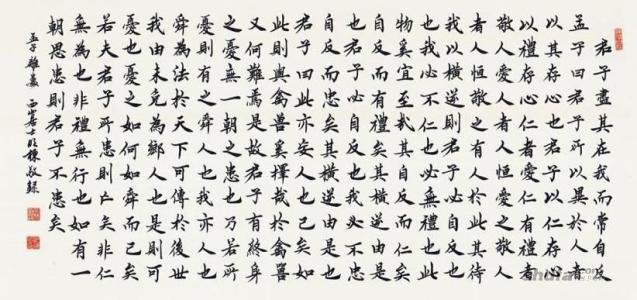 君子盡其在我而常自反
孟子曰君子所以異於人者
以其存心也君子以仁存心
以禮存心仁者愛人有禮者
敬人愛人者人恒愛之敬人
者人恒敬之有人於此其待
我以橫逆則君子必自反也
我必不仁也必無禮也此
物奚宜至哉其自反而仁矣
自反而有禮矣其橫逆由是
也君子必自反也我必不忠
自反而忠矣其橫逆由是也
君子曰此亦妄人也已矣如
此則與禽獸奚擇哉於禽獸
又何難焉是故君子有終身
之憂無一朝之患也乃若所
憂則有之舜人也我亦人也
舜為法於天下可傳於後世
我由未免為鄉人也是則可
憂也憂之如何如舜而已矣
若夫君子所患則亡矣非仁
無為也非禮無行也如有一
朝之患則君子不患矣
孟子離婁 敬録